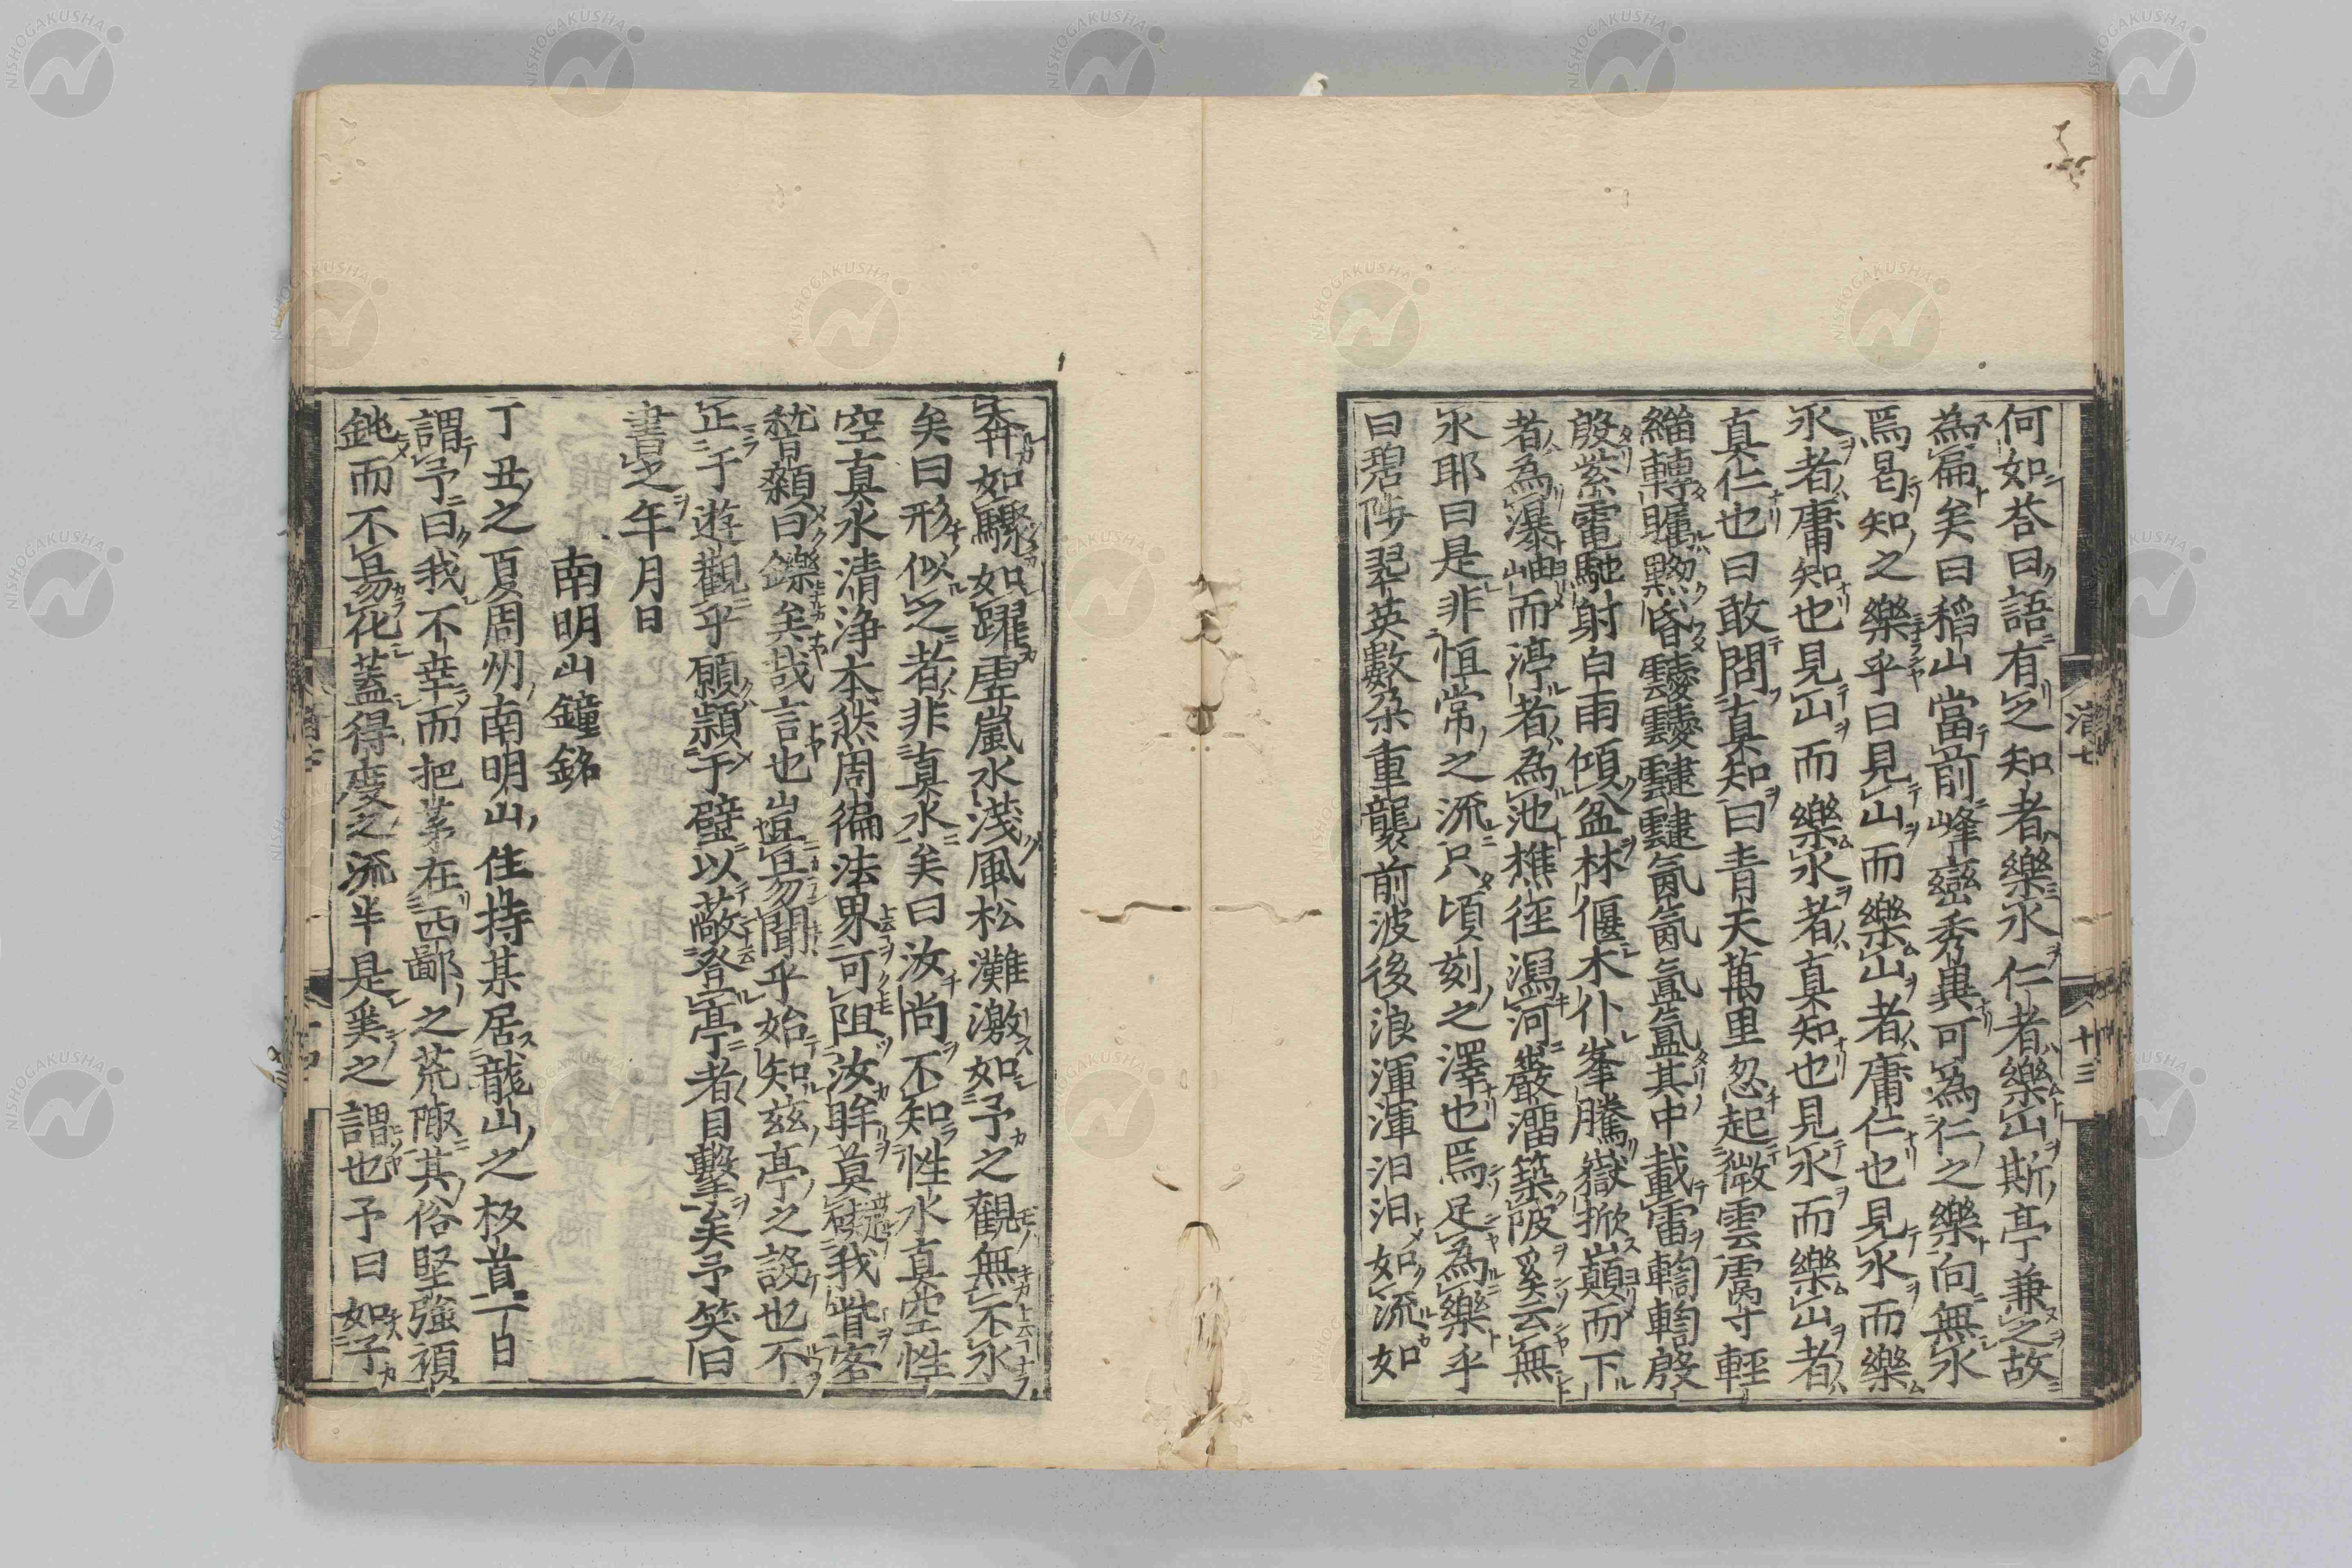 何如荅曰語有之知者樂水仁者樂山斯亭兼之故
為扁矣曰稻山當前峰巒秀異可為仁之樂向無水
焉曷知之樂乎曰見山而樂山者庸仁也見水而樂
水者庸知也見山而樂水者真知也見水而樂山者
真仁也曰敢問真知曰青天萬里忽起微雲膚寸輕
緇轉矚黟昏靉靉靆靆氤氤氳氳其中載雷輷輷殷
殷紫電馳射白雨傾盆林偃木仆峯騰嶽掀巔而下
者為瀑岫而渟者為池樵徑瀉河巖溜築陂奚云無
水耶曰是非恒常之流只頃刻之澤也焉足為樂乎
曰碧陦翠英數朶重襲前波後浪渾渾汩汩如流如
奔如驟如躍虛嵐水淺風松灘激如予之觀無不水
矣曰形似之者非真水矣曰汝尚不知性水真空性
空真水清浄本然周徧法界可阻汝眸莫礙我眥客
嵆顙曰鑠矣哉言也豈易聞乎始知兹亭之設也不
正于遊觀乎願纇于壁以蔽登亭者目擊矣予笑曰
書之年月日
南明山鐘銘
丁丑之夏周州南明山住持某居龍山之板首一日
謂予曰我不幸而把茅在西鄙之荒陬其俗堅強頑
鈍而不易化蓋得度之流半是奚之謂也予曰如子
濱七
十三